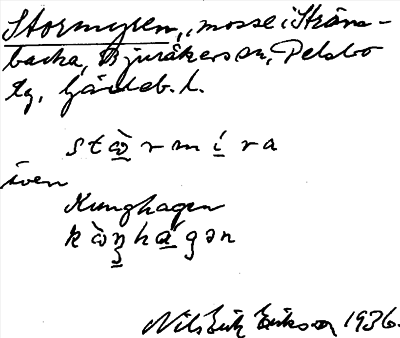 Stormyren, mosse i Sträms-
backa, Bjuråkers sn, Delsbo
tg, Gävleb. l.
stὼr m í ra
även
Kunghagen
k ὼŋ h a᷄ gən
Nils Erik Erikson 1936.